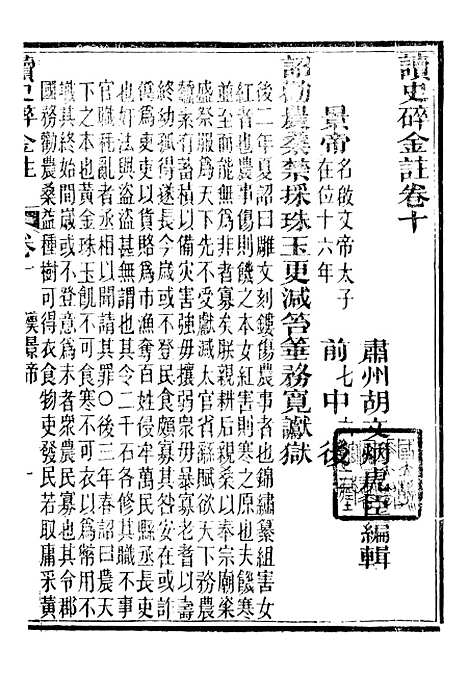 讀史碎金註卷十
肅州胡文炳虎臣編輯
景帝 名啟文帝太子 在位十六年 前七 中 後
詔勸農桑禁採珠玉更減笞箠務寬讞獄
後二年夏詔曰雕文刻鏤傷農事也錦繡纂組害女
紅者也農事傷則饑之本女紅害則寒之原也夫饑寒
並至而能亡為非者寡矣朕親耕后親桑以奉宗廟粢
盛祭服為天下先不受獻減太官省繇賦欲天下務農
蠶素有蓄積以備災害強毋攘弱衆毋暴寡老耆以壽
終幼孤得遂長今歲或不登民食頗寡其咎安在或詐
偽為吏以貨賂為市漁奪百姓侵牟萬民縣丞長吏
也奸法與盜盜甚無謂也其令二千石各修其職不事
官職耗亂者丞相以聞請其罪○後三年春詔曰農天
下之本也黃金珠玉飢不可食寒不可衣以為幣用不
識其終始間歲或不登意為末者衆農民寡也其令郡
國務勸農桑益種樹可得衣食物吏發民若取庸采黃
讀史碎金註 卷十 漢景帝 一